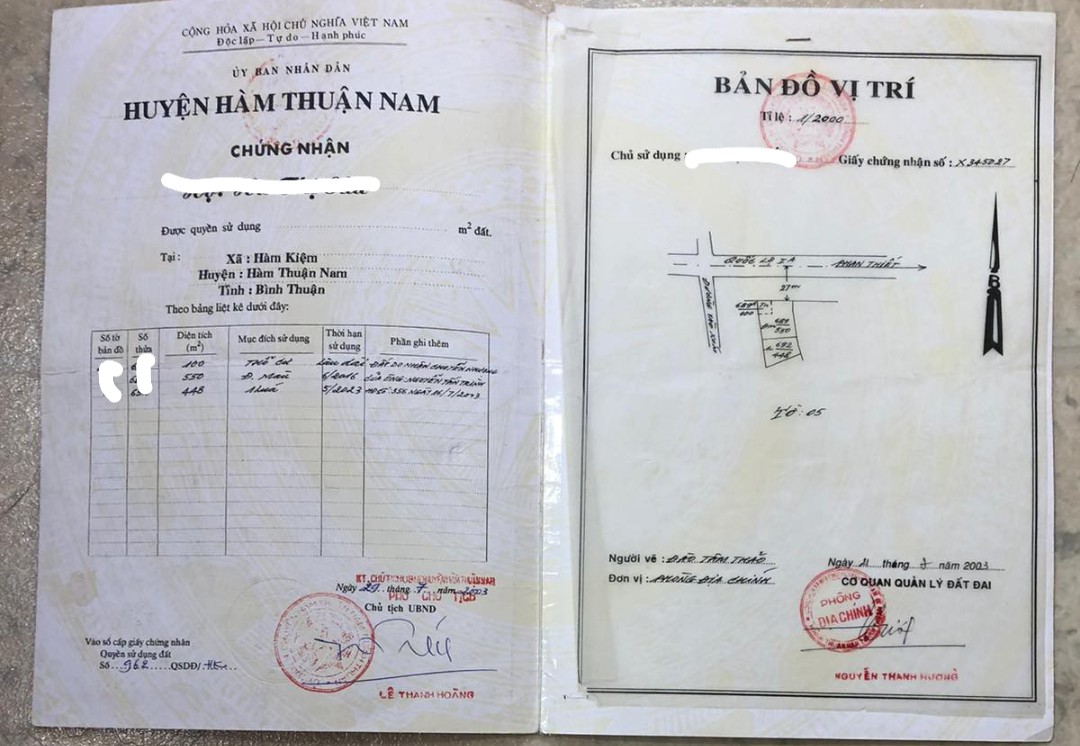 CỘNG HÒA XÃ HỘI CHỦ NGHĨA VIỆT NAM
Độc lập - Tự do - Hạnh phúc
ỦY BAN NHÂN DÂN
HUYỆN HÀM THUẬN NAM
CHỨNG NHẬN
Được quyền sử dụng m² đất.
Tại : Xã : Hàm Kiệm
Huyện : Hàm Thuận Nam
Tỉnh : Bình Thuận
Theo bảng liệt kê dưới đây:
Số tờ bản đồ Số thửa Diện tích (m²) Mục đích sử dụng Thời hạn sử dụng Phần ghi thêm
100 Thổ cư Lâu dài ĐẤT DO NHẬN CHUYỂN NHƯỢNG
550 Đ. Màu 6/2016 CỦA ÔNG NGUYỄN TẤN TRÌNH
448 Lúa 5/2023
PHÓ CHỦ TỊCH
Ngày 29 tháng 7 năm 2003
Chủ tịch UBND
LÊ THANH HOÀNG
Vào sổ cấp giấy chứng nhận
Quyền sử dụng đất
Số 962 QSDĐ/
BẢN ĐỒ VỊ TRÍ
Tỉ lệ : 1/2000
Chủ sử dụng : Giấy chứng nhận số : X 345027
B
QUỐC LỘ IA PHAN THIẾT
27m
100
550
692
448
TỜ : 05
Người vẽ : ĐÀO TÂM THẢO
Đơn vị : PHÒNG ĐỊA CHÍNH
Ngày 21 tháng 7 năm 2003
CƠ QUAN QUẢN LÝ ĐẤT ĐAI
PHÒNG
ĐỊA CHÍNH
NGUYỄN THANH HƯƠNG